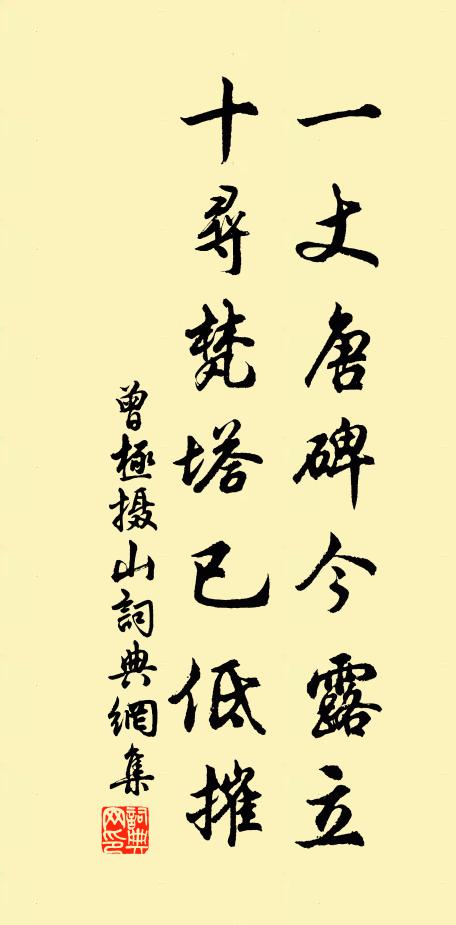 一丈唐碑今露立
十尋梵塔已低摧
曾極摄山詞典網集
詞典網印